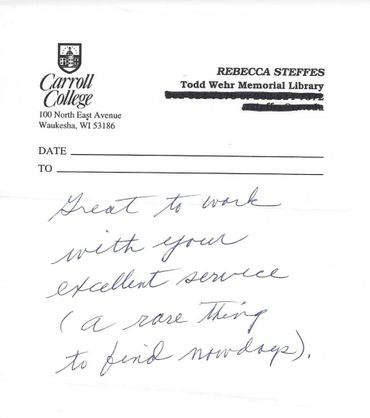 Carroll
College
100 North East Avenue
Waukesha, WI 53186
REBECCA STEFFES
Todd Wehr Memorial Library
DATE
TO
Great to work
with your
excellent service
(a rare thing
to find nowdays).